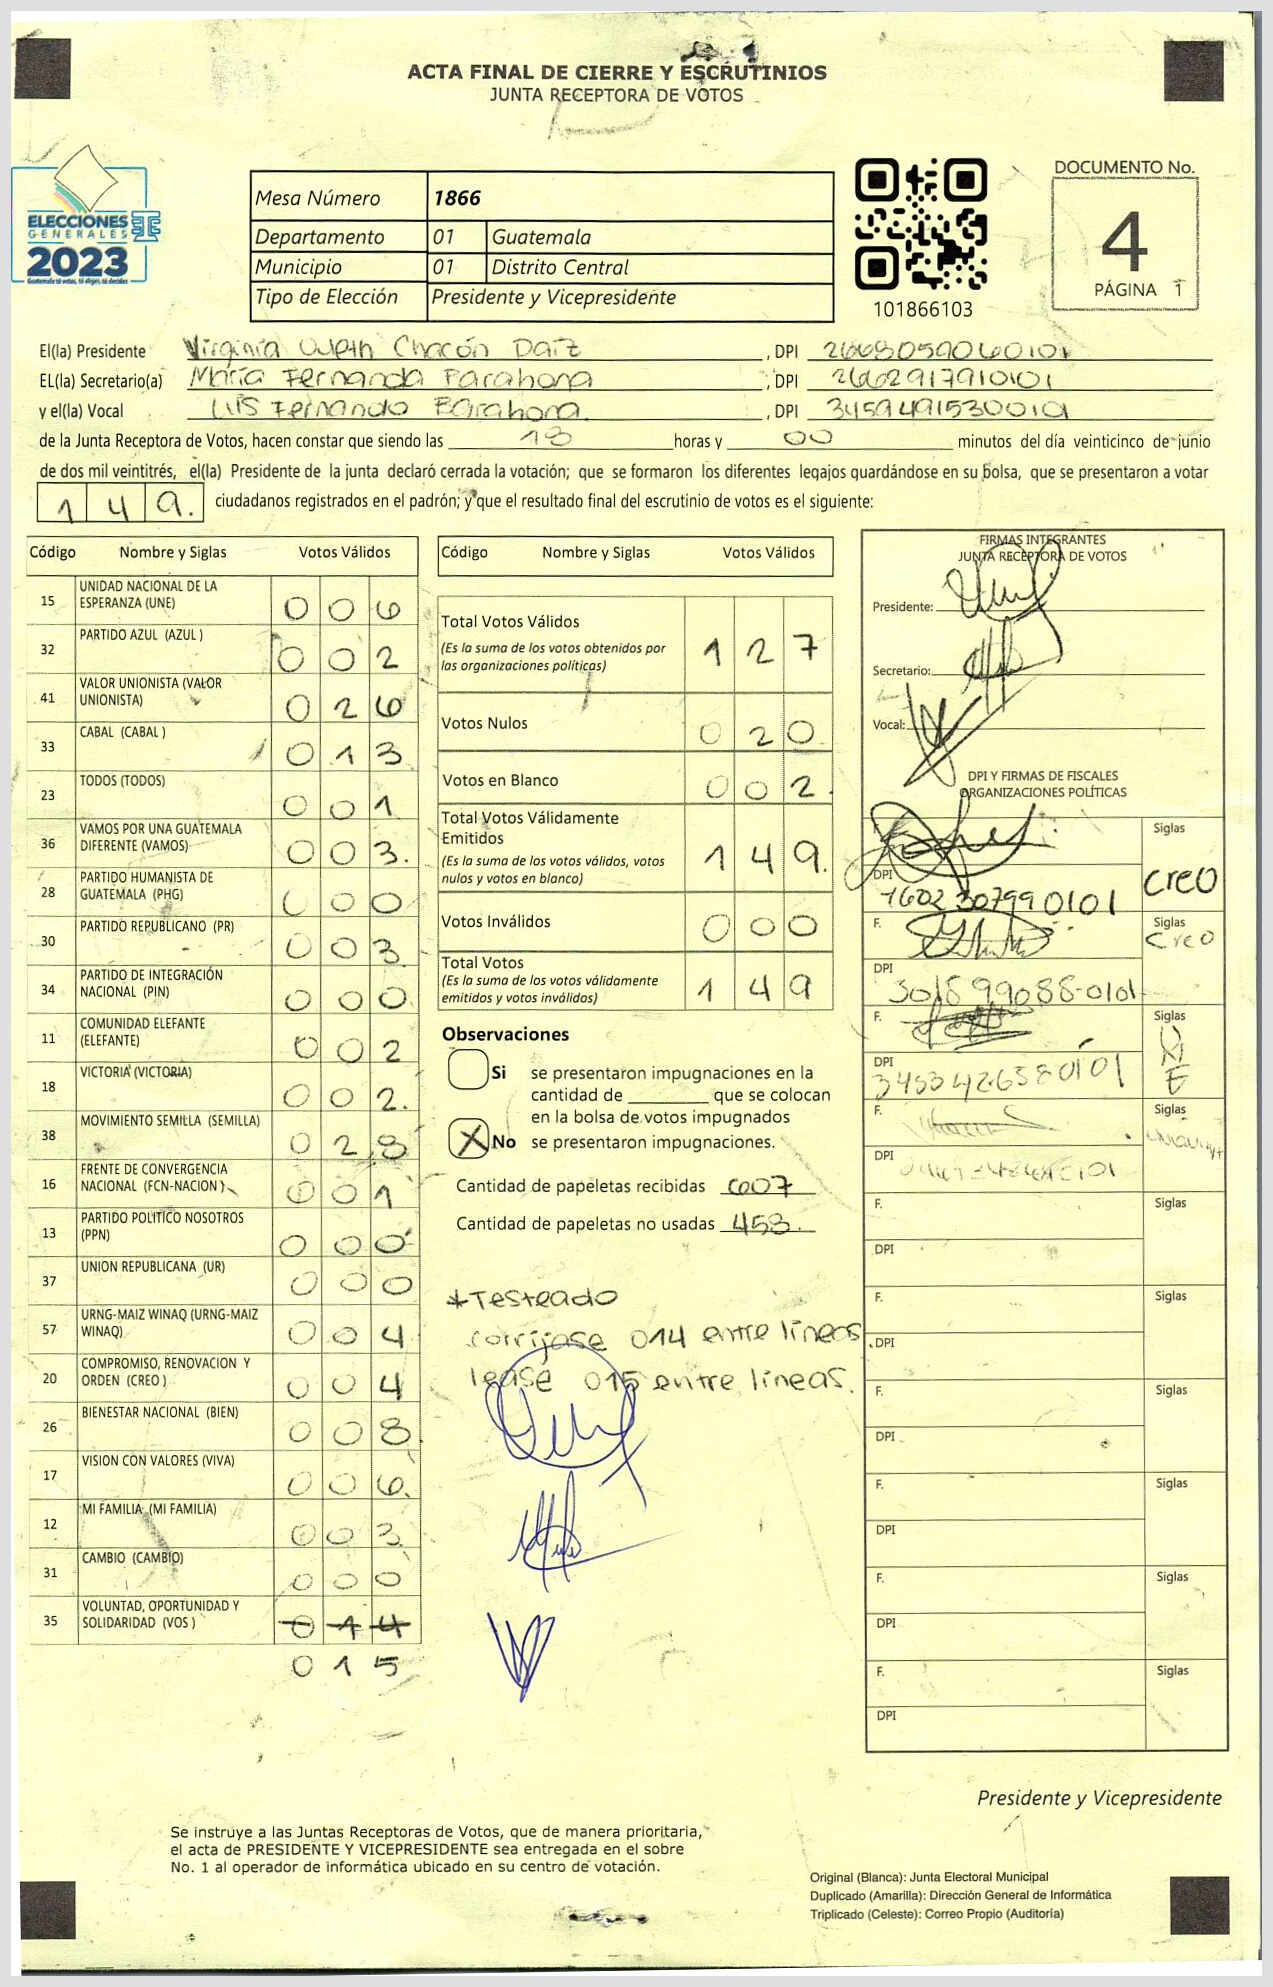 ACTA FINAL DE CIERRE Y ESCRUTINIOS
JUNTA RECEPTORA DE VOTOS
ELECCIONES
GENERALES
2023
Guatemala tú votas, tú eliges, tú decides
Mesa Número 1866
Departamento 01 Guatemala
Municipio 01 Distrito Central
Tipo de Elección Presidente y Vicepresidente
101866103
DOCUMENTO No.
4
PÁGINA 1
El(la) Presidente Virginia Chacón Daíz , DPI 2668059060101
EL(la) Secretario(a) María Fernanda Barahona , DPI 2662917910101
y el(la) Vocal Luis Fernando Barahona. , DPI 34594915300101
de la Junta Receptora de Votos, hacen constar que siendo las 18 horas y 00 minutos del día veinticinco de junio
de dos mil veintitrés, el(la) Presidente de la junta declaró cerrada la votación; que se formaron los diferentes legajos quardándose en su bolsa, que se presentaron a votar
1 4 9. ciudadanos registrados en el padrón; y que el resultado final del escrutinio de votos es el siguiente:
Código Nombre y Siglas Votos Válidos
15 UNIDAD NACIONAL DE LA ESPERANZA (UNE) 0 0 6
32 PARTIDO AZUL (AZUL ) 0 0 2
41 VALOR UNIONISTA (VALOR UNIONISTA) 0 2 6
33 CABAL (CABAL ) 0 1 3
23 TODOS (TODOS) 0 0 1
36 VAMOS POR UNA GUATEMALA DIFERENTE (VAMOS) 0 0 3.
28 PARTIDO HUMANISTA DE GUATEMALA (PHG) 0 0 0
30 PARTIDO REPUBLICANO (PR) 0 0 3
34 PARTIDO DE INTEGRACIÓN NACIONAL (PIN) 0 0 0
11 COMUNIDAD ELEFANTE (ELEFANTE) 0 0 2
18 VICTORIA (VICTORIA) 0 0 2.
38 MOVIMIENTO SEMILLA (SEMILLA) 0 2 8
16 FRENTE DE CONVERGENCIA NACIONAL (FCN-NACION) 0 0 1
13 PARTIDO POLITICO NOSOTROS (PPN) 0 0 0
37 UNION REPUBLICANA (UR) 0 0 0
57 URNG-MAIZ WINAQ (URNG-MAIZ WINAQ) 0 0 4
20 COMPROMISO, RENOVACION Y ORDEN (CREO ) 0 0 4
26 BIENESTAR NACIONAL (BIEN) 0 0 8
17 VISION CON VALORES (VIVA) 0 0 6.
12 MI FAMILIA (MI FAMILIA) 0 0 3
31 CAMBIO (CAMBIO) 0 0 0
35 VOLUNTAD, OPORTUNIDAD Y SOLIDARIDAD (VOS ) 0 1 4
0 1 5
Código Nombre y Siglas Votos Válidos
Total Votos Válidos 1 2 7
(Es la suma de los votos obtenidos por
las organizaciones políticas)
Votos Nulos 0 2 0
Votos en Blanco 0 0 2.
Total Votos Válidamente
Emitidos 1 4 9.
(Es la suma de los votos válidos, votos
nulos y votos en blanco)
Votos Inválidos 0 0 0
Total Votos 1 4 9
(Es la suma de los votos válidamente
emitidos y votos inválidos)
Observaciones
Si se presentaron impugnaciones en la
cantidad de ________ que se colocan
en la bolsa de votos impugnados
X No se presentaron impugnaciones.
Cantidad de papeletas recibidas 607
Cantidad de papeletas no usadas 458.
*Testeado
corríjase 014 entre líneas
lease 015 entre líneas.
FIRMAS INTEGRANTES
JUNTA RECEPTORA DE VOTOS
Presidente:
Secretario:
Vocal:
DPI Y FIRMAS DE FISCALES
ORGANIZACIONES POLÍTICAS
F. Siglas
DPI 1602307990101 CREO
F. Siglas
DPI 301899088-0101 CREO
F. Siglas
DPI 3453426580101 UNE
F. Siglas
DPI
F. Siglas
DPI
F. Siglas
DPI
F. Siglas
DPI
F. Siglas
DPI
F. Siglas
DPI
F. Siglas
DPI
Presidente y Vicepresidente
Se instruye a las Juntas Receptoras de Votos, que de manera prioritaria,
el acta de PRESIDENTE Y VICEPRESIDENTE sea entregada en el sobre
No. 1 al operador de informática ubicado en su centro de votación.
Original (Blanca): Junta Electoral Municipal
Duplicado (Amarilla): Dirección General de Informática
Triplicado (Celeste): Correo Propio (Auditoría)